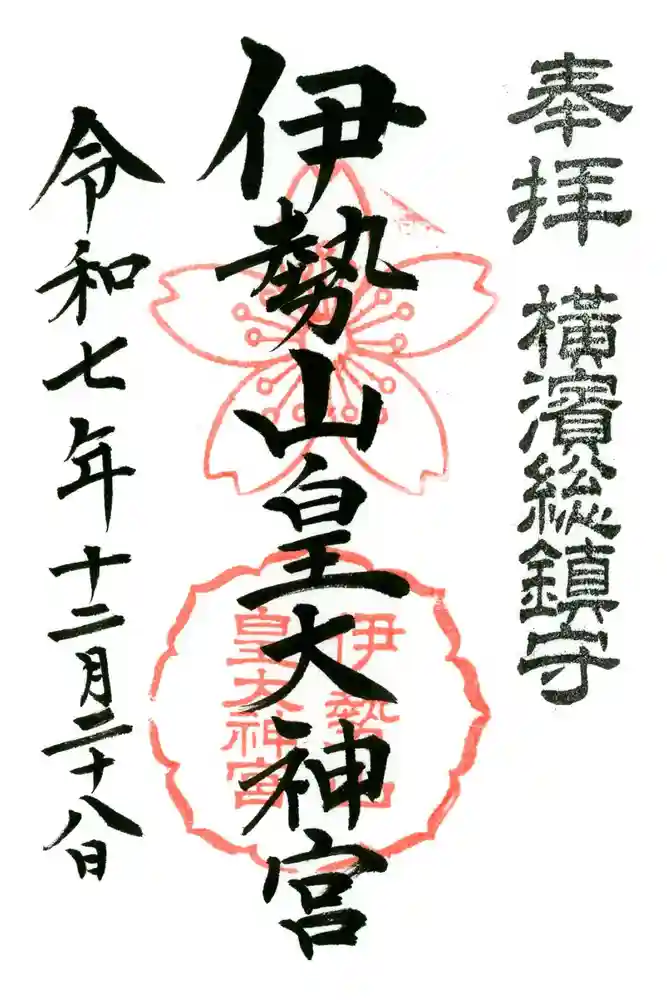 奉拝
横濱総鎮守
伊勢山皇大神宮
伊勢山
皇大神宮
令和七年十二月二十八日